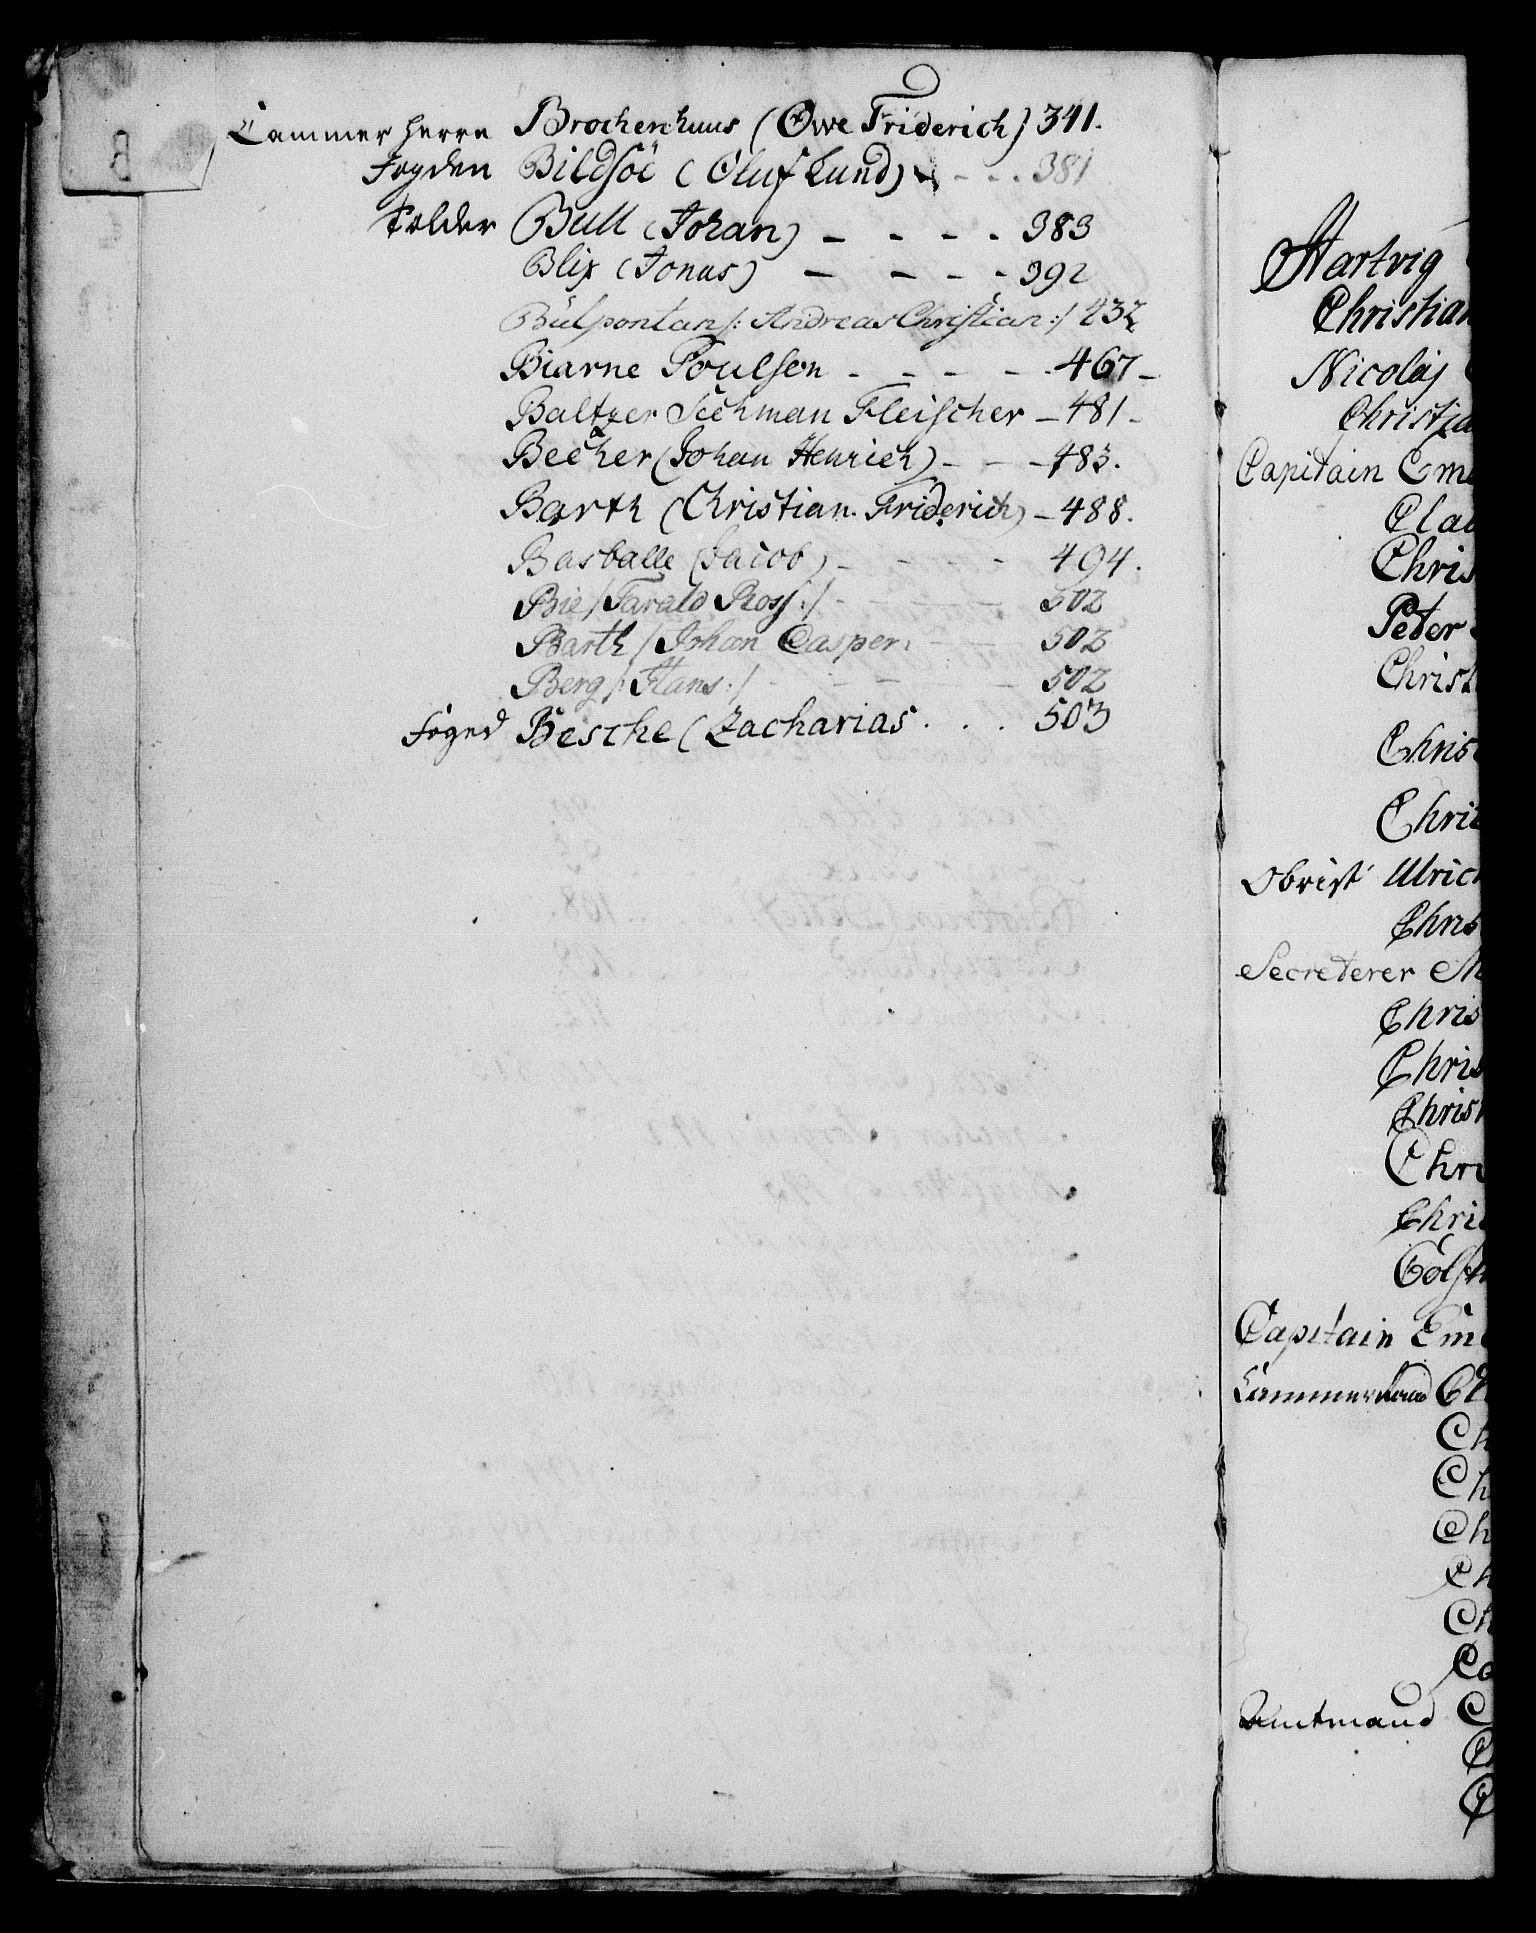 Cammer Herre Brochenhuus (Owe Friderich) 341.
Fogden Bildsöe (Oluf Lund) - - . 381
Tolder Bull (Johan) - - - - 383
Blix (Jonas) - - - - 392
Bülpontan /: Andreas Christian :/ 432
Biarne Poulsen - - - - 467 -
Baltzer Séehman Fleischer - 481 -
Becher (Johan Henrich) - - - 483.
Barth (Christian Friderich) - 488.
Basballe (Jacob) - - - - 494.
Bie /: Harald Ross :/ - - - - 502
Barth /: Johan Casper: - - 502
Berg /: Hans :/ - - - - 502
Foged Besche (Zacharias . . . 503
B
Hartvig
Christian
Nicolaj
Christia
Capitain Em
Clau
Chris
Peter
Christ
Christ
Chri
Obrist Ulrich
Chris
Secreterer M
Chris
Chris
Christ
Chri
Chri
Capitain Em
Cammerraad
Ch
Ch
Ch
Ch
Ch
Co
Amtmand C